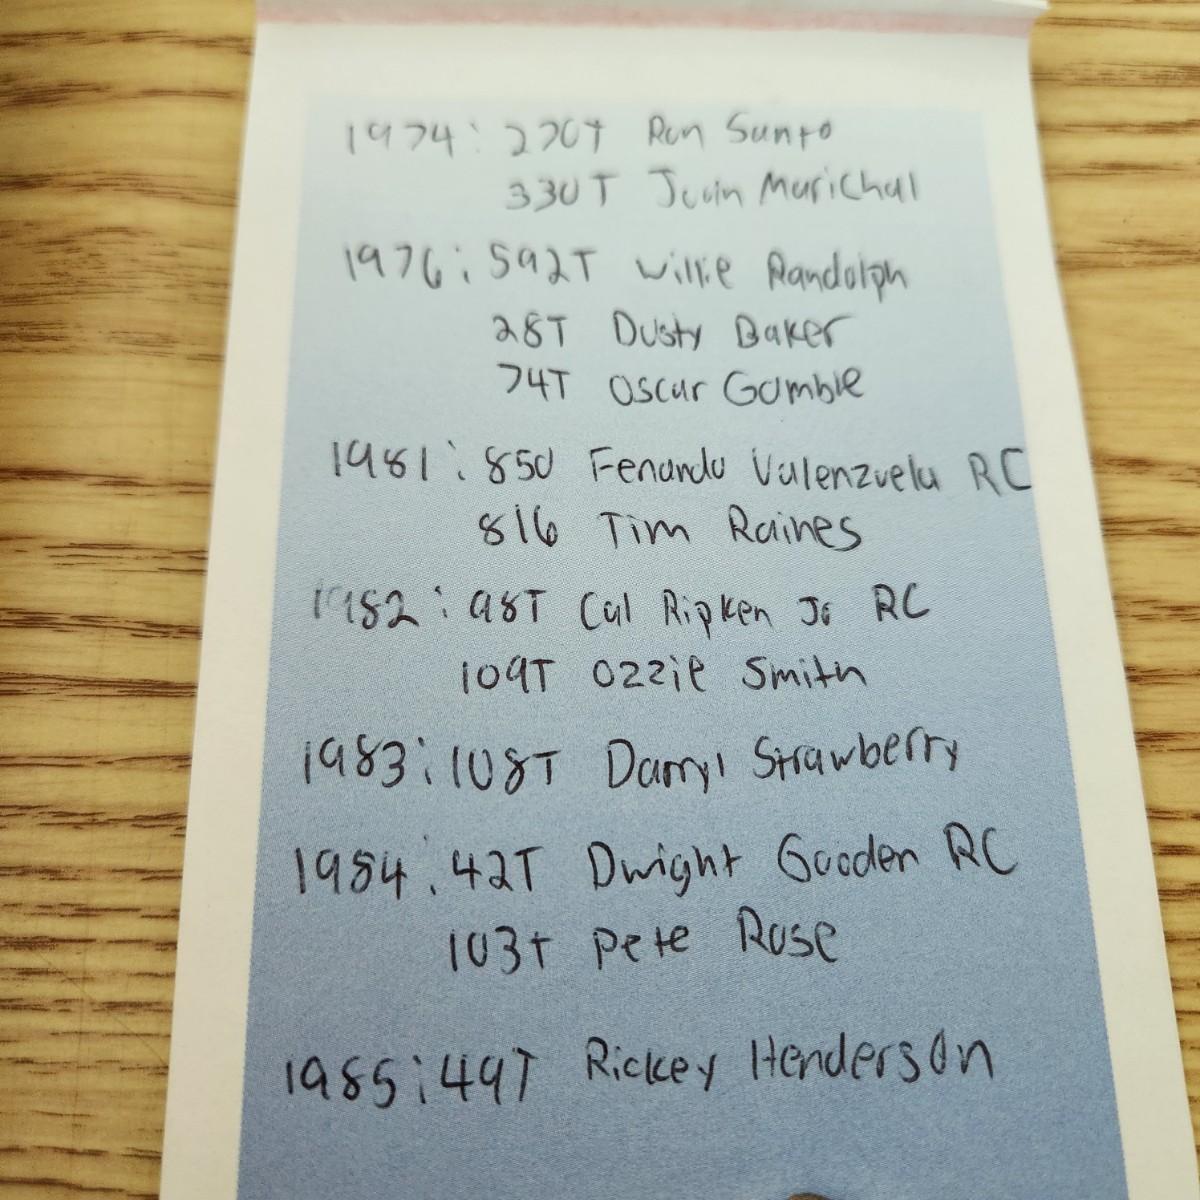 1974: 270T Ron Santo
330T Juan Marichal
1976: 592T Willie Randolph
28T Dusty Baker
74T Oscar Gamble
1981: 850 Fenando Valenzuela RC
816 Tim Raines
1982: 98T Cal Ripken Jr RC
109T Ozzie Smith
1983: 108T Darryl Strawberry
1984: 42T Dwight Gooden RC
103T Pete Rose
1985: 49T Rickey Henderson